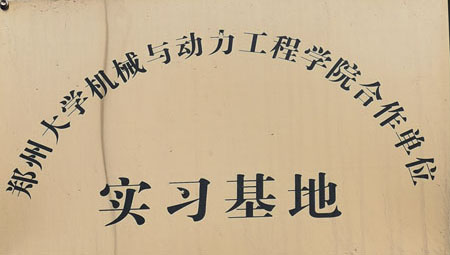 郑州大学机械与动力工程学院合作单位
实习基地